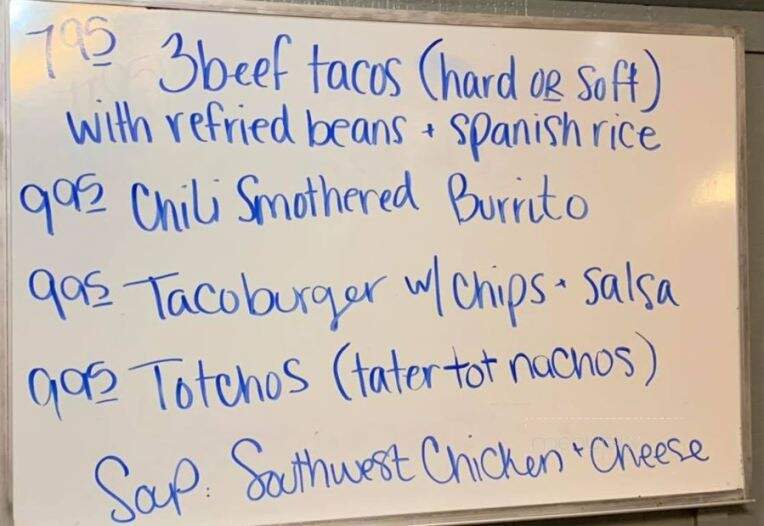 7 95 3 beef tacos (hard OR Soft)
with refried beans + spanish rice
9 95 Chili Smothered Burrito
9 95 Tacoburger w/ chips + salsa
9 95 Totchos (tater tot nachos)
Soup: Southwest Chicken + Cheese